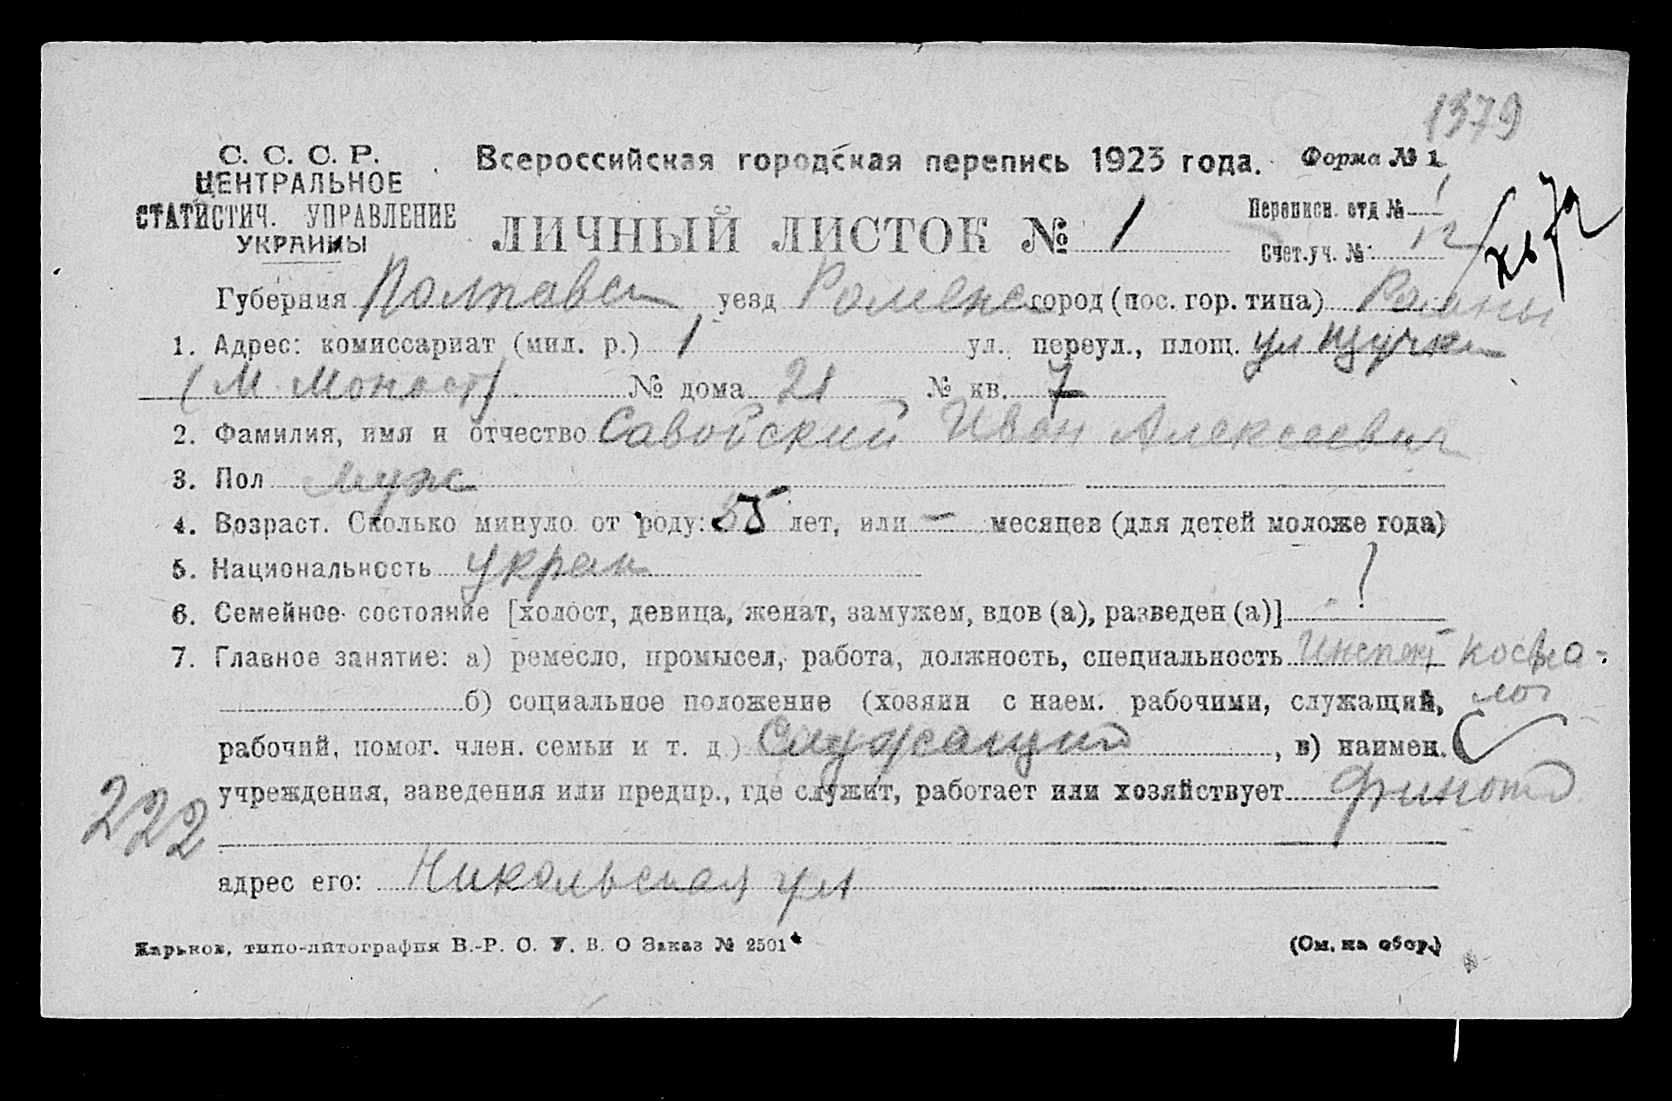 1379
С. С. С. Р.
ЦЕНТРАЛЬНОЕ
СТАТИСТИЧ. УПРАВЛЕНИЕ
УКРАИНЫ
Всероссийская городская перепись 1923 года. Форма № 1
ЛИЧНЫЙ ЛИСТОК № 1
Переписн. отд № 1
Счет.уч. № 12
Губерния Полтавск уезд Роменск город (пос. гор. типа) Ромны
1. Адрес: комиссариат (мил. р.) 1 ул., переул., площ. ул Щучки
(М Монаст) № дома 21 № кв. 7
2. Фамилия, имя и отчество Савойский Иван Алексеевич
3. Пол муж
4. Возраст. Сколько минуло от роду: 55 лет, или — месяцев (для детей моложе года)
5. Национальность украин
6. Семейное состояние [холост, девица, женат, замужем, вдов (а), разведен (а)]
7. Главное занятие: а) ремесло, промысел, работа, должность, специальность Инспект косв на-
лог
б) социальное положение (хозяин с наем. рабочими, служащий,
рабочий, помог. член. семьи и т. д.) Служащий, в) наимен.
учреждения, заведения или предпр., где служит, работает или хозяйствует Финотд
222
адрес его: Никольская ул
Харьков, типо-литография В.-Р. С. У. В. О Заказ № 2501
(См. на обор.)